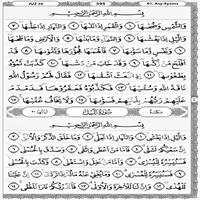 JUZ 30 595 91. Asy-Syams
بِسْمِ اللَّهِ الرَّحْمَٰنِ الرَّحِيمِ
وَالشَّمْسِ وَضُحَاهَا ١ وَالْقَمَرِ إِذَا تَلَاهَا ٢ وَالنَّهَارِ إِذَا جَلَّاهَا ٣
وَاللَّيْلِ إِذَا يَغْشَاهَا ٤ وَالسَّمَاءِ وَمَا بَنَاهَا ٥ وَالْأَرْضِ وَمَا طَحَاهَا ٦
وَنَفْسٍ وَمَا سَوَّاهَا ٧ فَأَلْهَمَهَا فُجُورَهَا وَتَقْوَاهَا ٨ قَدْ أَفْلَحَ
مَن زَكَّاهَا ٩ وَقَدْ خَابَ مَن دَسَّاهَا ١٠ كَذَّبَتْ ثَمُودُ بِطَغْوَاهَا
١١ إِذِ انبَعَثَ أَشْقَاهَا ١٢ فَقَالَ لَهُمْ رَسُولُ اللَّهِ نَاقَةَ اللَّهِ
وَسُقْيَاهَا ١٣ فَكَذَّبُوهُ فَعَقَرُوهَا فَدَمْدَمَ عَلَيْهِمْ رَبُّهُم
بِذَنبِهِمْ فَسَوَّاهَا ١٤ وَلَا يَخَافُ عُقْبَاهَا ١٥
سُورَةُ اللَّيْلِ
بِسْمِ اللَّهِ الرَّحْمَٰنِ الرَّحِيمِ
وَاللَّيْلِ إِذَا يَغْشَىٰ ١ وَالنَّهَارِ إِذَا تَجَلَّىٰ ٢ وَمَا خَلَقَ الذَّكَرَ وَالْأُنثَىٰ ٣
إِنَّ سَعْيَكُمْ لَشَتَّىٰ ٤ فَأَمَّا مَنْ أَعْطَىٰ وَاتَّقَىٰ ٥ وَصَدَّقَ بِالْحُسْنَىٰ ٦
فَسَنُيَسِّرُهُ لِلْيُسْرَىٰ ٧ وَأَمَّا مَن بَخِلَ وَاسْتَغْنَىٰ ٨ وَكَذَّبَ بِالْحُسْنَىٰ ٩
فَسَنُيَسِّرُهُ لِلْعُسْرَىٰ ١٠ وَمَا يُغْنِي عَنْهُ مَالُهُ إِذَا تَرَدَّىٰ ١١ إِنَّ عَلَيْنَا
لَلْهُدَىٰ ١٢ وَإِنَّ لَنَا لَلْآخِرَةَ وَالْأُولَىٰ ١٣ فَأَنذَرْتُكُمْ نَارًا تَلَظَّىٰ ١٤